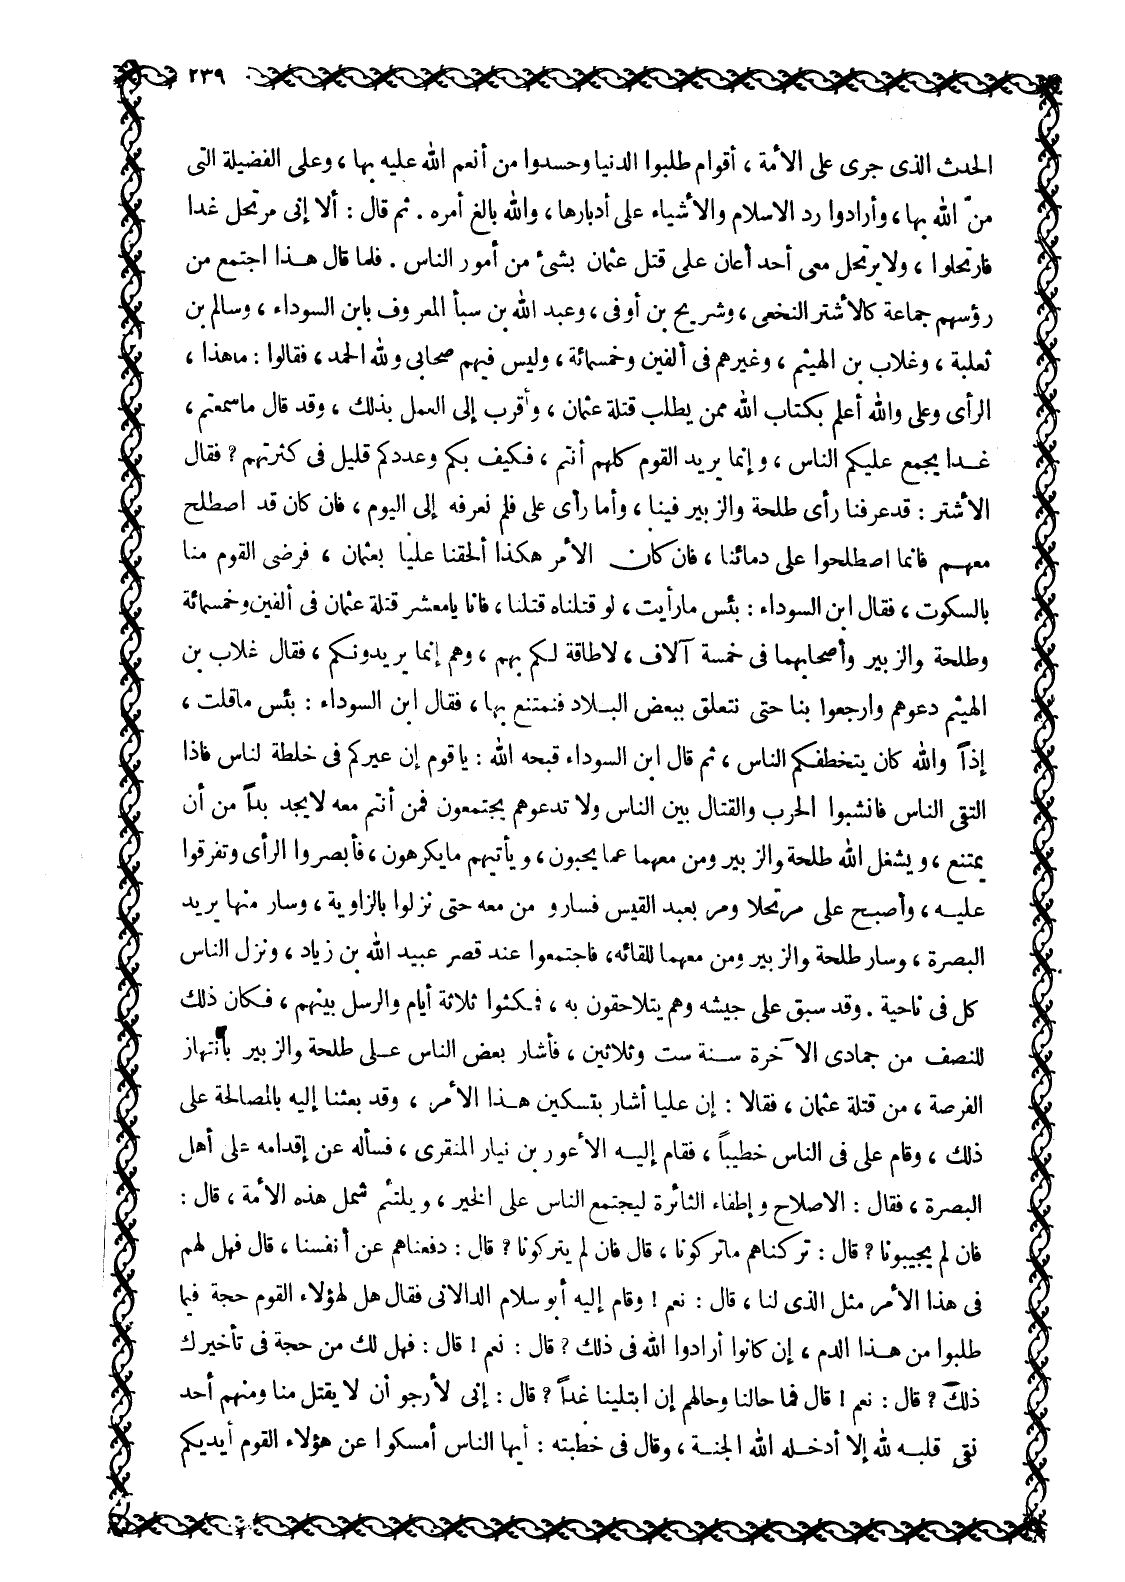 ٢٣٩
الحدث الذى جرى على الأمة ، أقوام طلبوا الدنيا وحسدوا من أنعم الله عليه بها ، وعلى الفضيلة التى
منّ الله بها ، وأرادوا رد الاسلام والأشياء على أدبارها ، والله بالغ أمره . ثم قال : ألا إنى مرتحل غدا
فارتحلوا ، ولا يرتحل معى أحد أعان على قتل عثمان بشىء من أمور الناس . فلما قال هذا اجتمع من
رؤسهم جماعة كالأشتر النخعى ، وشريح بن أوفى ، وعبد الله بن سبأ المعروف بابن السوداء ، وسالم بن
ثعلبة ، وغلاب بن الهيثم ، وغيرهم فى ألفين وخمسمائة ، وليس فيهم صحابى ولله الحمد ، فقالوا : ماهذا ،
الرأى وعلى والله أعلم بكتاب الله ممن يطلب قتلة عثمان ، وأقرب إلى العمل بذلك ، وقد قال ماسمعتم ،
غدا يجمع عليكم الناس ، وإنما يريد القوم كلهم أنتم ، فكيف بكم وعددكم قليل فى كثرتهم ؟ فقال
الأشتر : قد عرفنا رأى طلحة والزبير فينا ، وأما رأى على فلم نعرفه إلى اليوم ، فان كان قد اصطلح
معهم فانما اصطلحوا على دمائنا ، فان كان الأمر هكذا ألحقنا عليا بعثمان ، فرضى القوم منا
بالسكوت ، فقال ابن السوداء : بئس مارأيت ، لو قتلناه قتلنا ، فانا يامعشر قتلة عثمان فى ألفين وخمسمائة
وطلحة والزبير وأصحابهما فى خمسة آلاف ، لاطاقة لكم بهم ، وهم إنما يريدونكم ، فقال غلاب بن
الهيثم دعوهم وارجعوا بنا حتى نتعلق ببعض البلاد فنمتنع بها ، فقال ابن السوداء : بئس ماقلت ،
إذاً والله كان يتخطفكم الناس ، ثم قال ابن السوداء قبحه الله : ياقوم إن عيركم فى خلطة لناس فاذا
التقى الناس فانشبوا الحرب والقتال بين الناس ولا تدعوهم يجتمعون فمن أنتم معه لايجد بداً من أن
يمتنع ، ويشغل الله طلحة والزبير ومن معهما عما يحبون ، ويأتيهم مايكرهون ، فأبصروا الرأى وتفرقوا
عليه ، وأصبح على مرتحلا ومر بعبد القيس فسارو من معه حتى نزلوا بالزاوية ، وسار منها يريد
البصرة ، وسار طلحة والزبير ومن معهما للقائه ، فاجتمعوا عند قصر عبيد الله بن زياد ، ونزل الناس
كل فى ناحية . وقد سبق على جيشه وهم يتلاحقون به ، فمكثوا ثلاثة أيام والرسل بينهم ، فكان ذلك
للنصف من جمادى الآخرة سنة ست وثلاثين ، فأشار بعض الناس على طلحة والزبير بأنتهاز
الفرصة ، من قتلة عثمان ، فقالا : إن عليا أشار بتسكين هذا الأمر ، وقد بعثنا إليه بالمصالحة على
ذلك ، وقام على فى الناس خطيباً ، فقام إليه الأعور بن نيار المنقرى ، فسأله عن إقدامه على أهل
البصرة ، فقال : الاصلاح وإطفاء الثائرة ليجتمع الناس على الخير ، ويلتئم شمل هذه الأمة ، قال :
فان لم يجيبونا ؟ قال : تركناهم ماتركونا ، قال فان لم يتركونا ؟ قال : دفعناهم عن أنفسنا ، قال فهل لهم
فى هذا الأمر مثل الذى لنا ، قال : نعم ! وقام إليه أبو سلام الدالانى فقال هل لهؤلاء القوم حجة فيما
طلبوا من هذا الدم ، إن كانوا أرادوا الله فى ذلك ؟ قال : نعم ! قال : فهل لك من حجة فى تأخيرك
ذلك ؟ قال : نعم ! قال فما حالنا وحالهم إن ابتلينا غداً ؟ قال : إنى لأرجو أن لا يقتل منا ومنهم أحد
نقى قلبه لله إلا أدخله الله الجنة ، وقال فى خطبته : أيها الناس أمسكوا عن هؤلاء القوم أيديكم